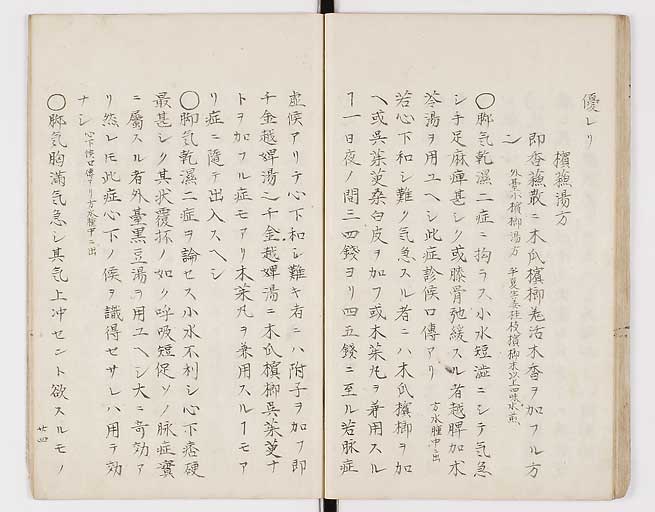 優レリ
檳蘓湯方
即杏蘓散ニ木瓜檳榔羗活木香ヲ加フル方
ン 外䑓小檳榔湯方 半夏杏姜桂枝檳榔末以上四味水煎
〇脚気乾濕二症ニ拘ラス小水短澁ニシテ気急
シ手足麻痺甚シク或膝骨弛緩スル者越脾加朮
苓湯ヲ用ユヘシ此症診候口傳アリ 方水腫中ニ出
若心下和シ難ク気急スル者ニハ木瓜檳榔ヲ加
ヘ或呉茱萸桑白皮ヲ加フ或木茱丸ヲ兼用スル
ヿ一日夜ノ間三四錢ヨリ四五錢ニ至ル若脉症
虚候アリテ心下和シ難キ者ニハ附子ヲ加フ即
千金越婢湯也千金越婢湯ニ木瓜檳榔呉茱萸ナ
トヲ加フル症モアリ木茱丸ヲ兼用スルヿモア
リ症ニ隨テ出入スヘシ
〇脚気乾濕二症ヲ論セス小水不利シ心下痞硬
最甚シク其状覆杯ノ如ク呼吸短促ソノ脉症實
ニ屬スル者外臺黒豆湯ヲ用ユヘシ大ニ奇効ア
リ然レ𪜈此症心下ノ候ヲ識得セサレハ用テ効
ナシ 心下候口傳アリ方水腫中ニ出
〇脚気胸滿気急シ其気上冲セント欲スルモノ
廿四